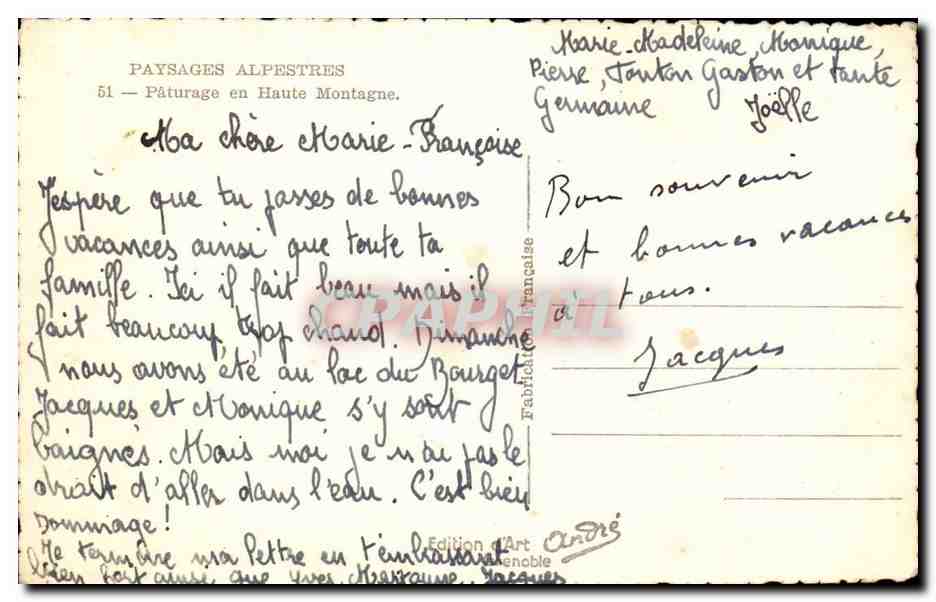 PAYSAGES ALPESTRES
51 — Pâturage en Haute Montagne.
Ma chère Marie-Françoise
J'espère que tu passes de bonnes
vacances ainsi que toute ta
famille. Ici il fait beau mais il
fait beaucoup trop chaud. Dimanche
nous avons été au lac du Bourget.
Jacques et Monique s'y sont
baignés. Mais moi je n'ai pas le
droit d'aller dans l'eau. C'est bien
dommage!
Je termine ma lettre en t'embrassant
bien fort ainsi que Yves Jacques
Marie-Madeleine, Monique,
Pierre, Tonton Gaston et tante
Germaine Joëlle
Bon souvenir
et bonnes vacances
à tous.
Jacques
Fabrication Française
Edition d'Art André
Grenoble
CPAPHIL